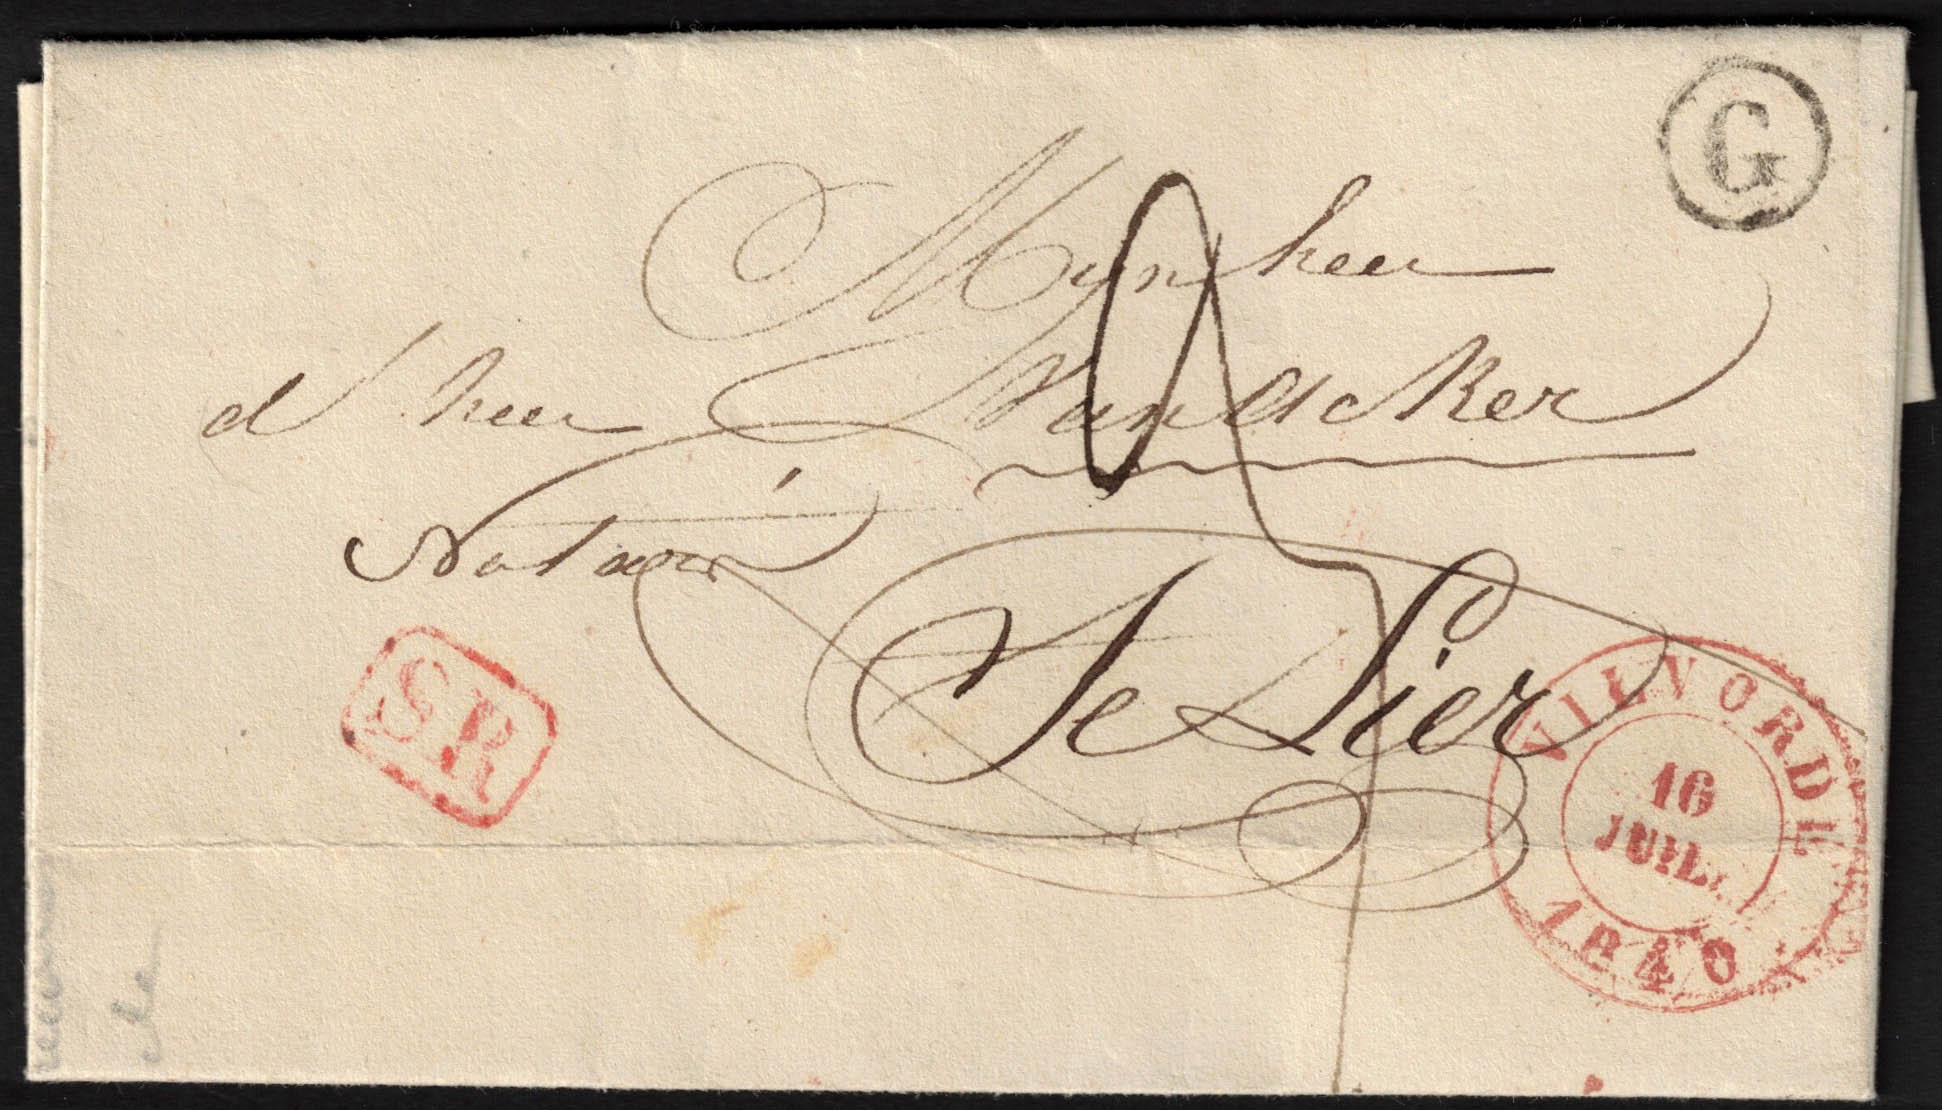 G
Mynheer
d'heer Van Acker
Notaris
Te Lier
SR
VILVORDE
16
JUIL.
1840